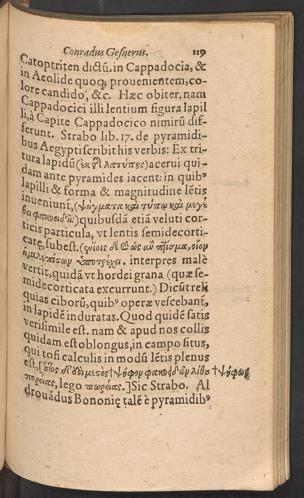 Conradus Gesnerus. 119
Catoptriten dictũ, in Cappadocia, &
in Aeolide quoq; prouenientem, co-
lore candido, &c. Hæc obiter. nam
Cappadocici illi lentium figura lapil
li, à Capite Cappadocico nimirũ dif-
ferunt. Strabo lib. 17. de pyramidi-
bus Aegypti scribit his verbis: Ex tri-
tura lapidũ (ἐκ λατύπης) acerui qui-
dam ante pyramides iacent: in quibꝰ
lapilli & forma & magnitudine lẽtis
inueniunt, (ψήγματα καὶ τύπῳ καὶ μεγέ-
θει φακοειδῆ:) quibusdã etiã veluti cor-
ticis particula, vt lentis semidecorti-
catę, subest. (ὡς ἂν πτίσμα, οἷον
ἡμιλεπίστων ὑποτρέχει. interpres malè
vertit, quidã vt hordei grana (quæ se-
midecorticata excurrunt.) Dicũt reli
quias ciborũ, quibꝰ operæ vescebant̃,
in lapidẽ induratas. Quod quidẽ satis
verisimile est. nam & apud nos collis
quidam est oblongus, in campo situs,
qui tofi calculis in modũ lẽtis plenus
est.
πωρείας, lego πωρείας.] Sic Strabo. Al
drouãdus Bononię talẽ è pyramidibꝰ